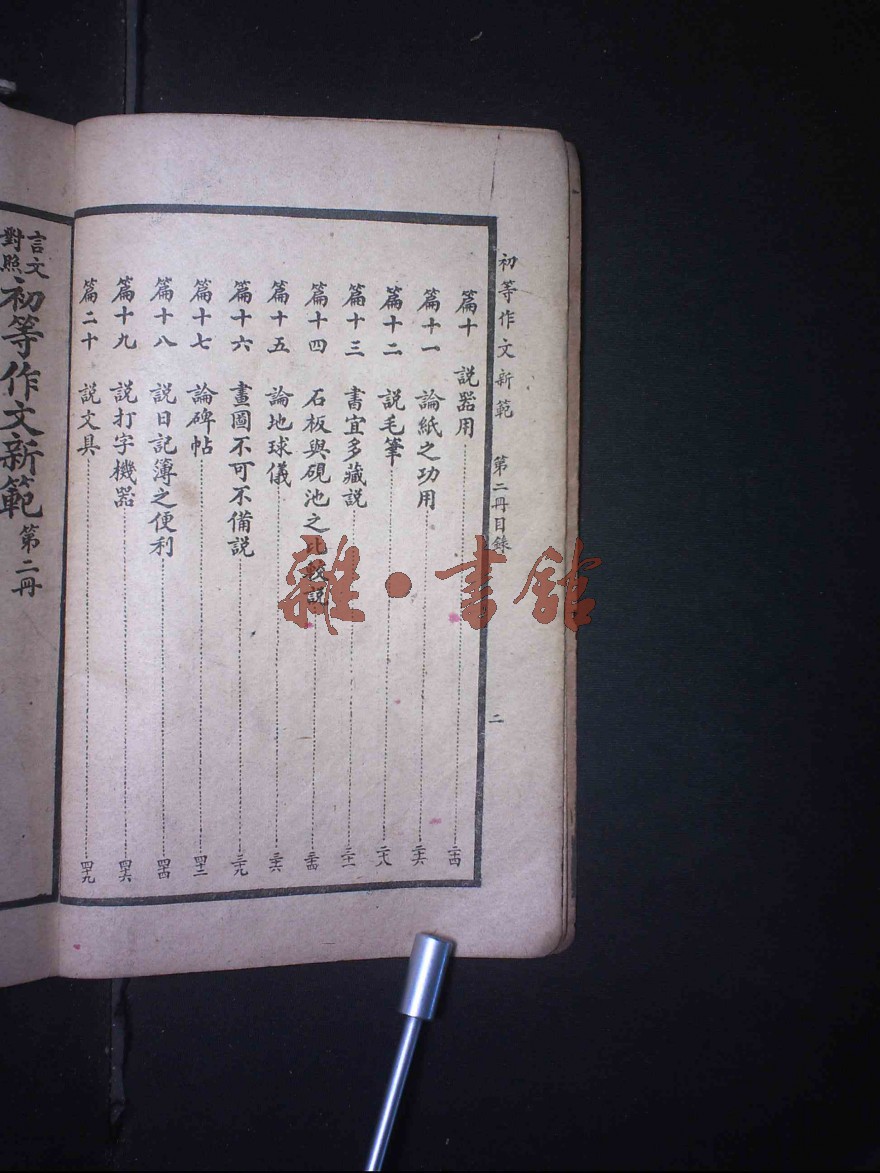 初等作文新範 第二冊目錄 二
篇十 説器用 二十四
篇十一 論紙之功用 二十六
篇十二 説毛筆 二十八
篇十三 書宜多藏説 三十一
篇十四 石板與硯池之比較説 三十四
篇十五 論地球儀 三十六
篇十六 畫圖不可不備説 三十九
篇十七 論碑帖 四十二
篇十八 説日記簿之便利 四十四
篇十九 説打字機器 四十六
篇二十 説文具 四十九
言文對照初等作文新範 第二冊
雜·書館